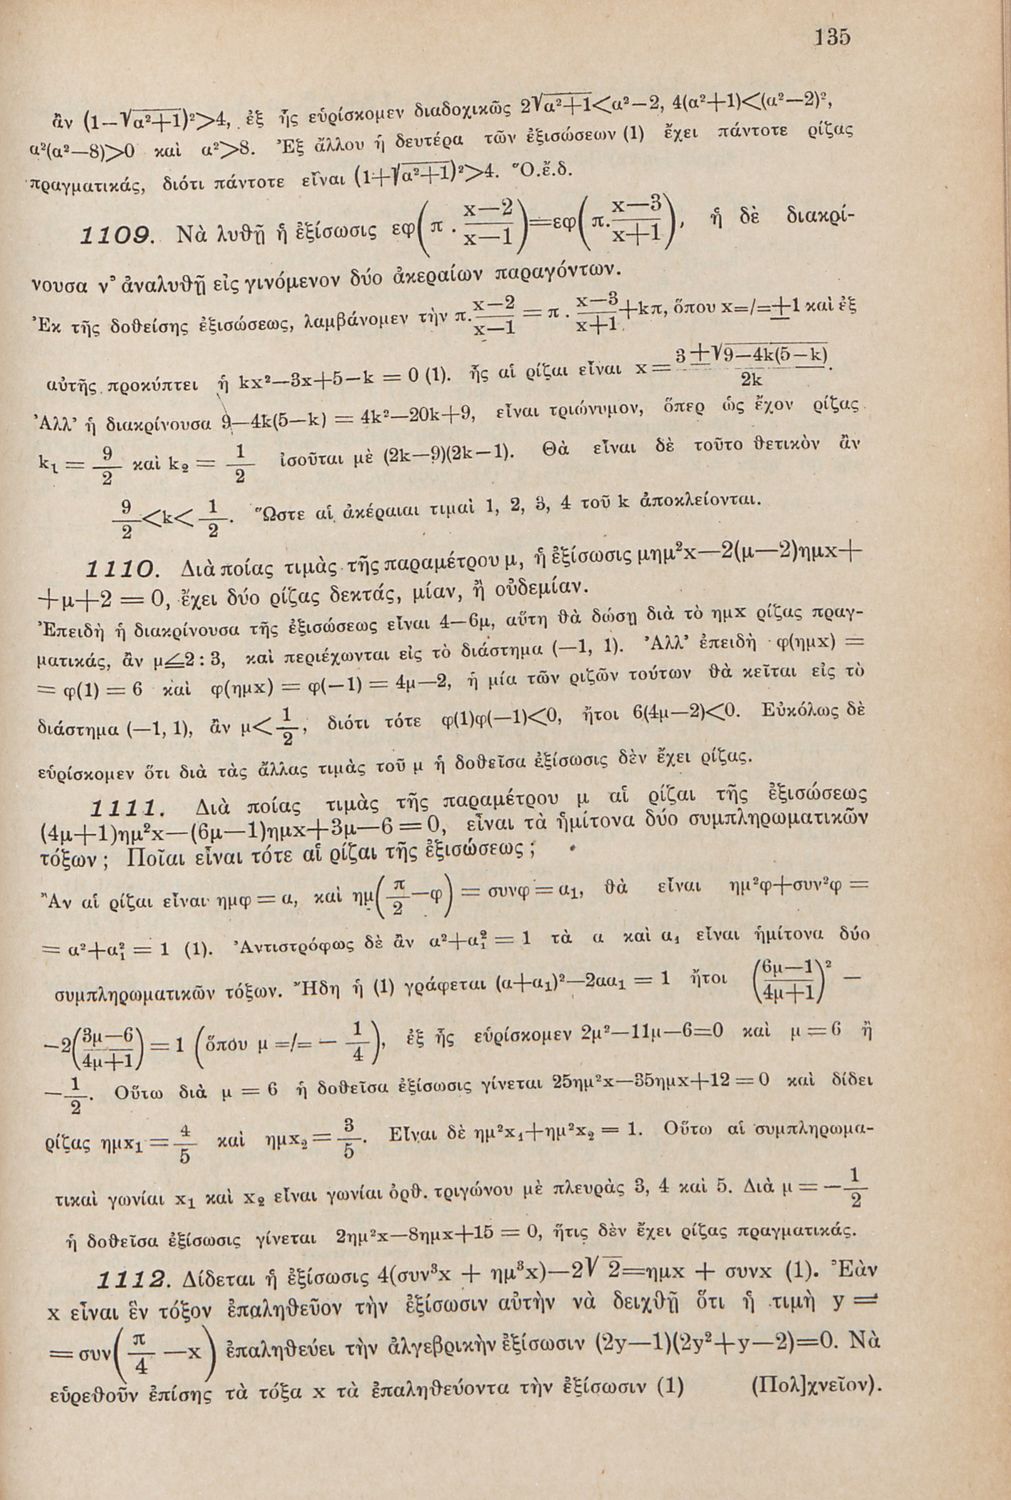 135
ἂν (1—√α²+1)²>4, ἐξ ἧς εὑρίσκομεν διαδοχικῶς 2√α²+1<α²—2, 4(α²+1)<(α²—2)²,
α²(α²—8)>0 καὶ α²>8. Ἐξ ἄλλου ἡ δευτέρα τῶν ἐξισώσεων (1) ἔχει πάντοτε ρίζας
πραγματικάς, διότι πάντοτε εἶναι (1+√α²+1)²>4. Ὅ.ἔ.δ.
1109. Νὰ λυθῇ ἡ ἐξίσωσις εφ(π · x—2/x—1)=εφ(π.x—3/x+1), ἡ δὲ διακρί-
νουσα ν' ἀναλυθῇ εἰς γινόμενον δύο ἀκεραίων παραγόντων.
Ἐκ τῆς δοθείσης ἐξισώσεως, λαμβάνομεν τὴν π.x—2/x—1 = π . x—3/x+1+kπ, ὅπου x=/=±1 καὶ ἐξ
αὐτῆς προκύπτει ἡ kx²—3x+5—k = 0 (1). ἧς αἱ ρίζαι εἶναι x = 3±√9—4k(5—k)/2k.
Ἀλλ' ἡ διακρίνουσα 9—4k(5—k) = 4k²—20k+9, εἶναι τριώνυμον, ὅπερ ὡς ἔχον ρίζας
k₁ = 9/2 καὶ k₂ = 1/2 ἰσοῦται μὲ (2k—9)(2k—1). Θὰ εἶναι δὲ τοῦτο θετικὸν ἂν
9/2<k<1/2. Ὥστε αἱ ἀκέραιαι τιμαὶ 1, 2, 3, 4 τοῦ k ἀποκλείονται.
1110. Διὰ ποίας τιμὰς τῆς παραμέτρου μ, ἡ ἐξίσωσις μημ²x—2(μ—2)ημx+
+μ+2 = 0, ἔχει δύο ρίζας δεκτάς, μίαν, ἢ οὐδεμίαν.
Ἐπειδὴ ἡ διακρίνουσα τῆς ἐξισώσεως εἶναι 4—6μ, αὕτη θὰ δώσῃ διὰ τὸ ημx ρίζας πραγ-
ματικάς, ἂν μ≤2 : 3, καὶ περιέχωνται εἰς τὸ διάστημα (—1, 1). Ἀλλ' ἐπειδὴ φ(ημx) =
= φ(1) = 6 καὶ φ(ημx) = φ(—1) = 4μ—2, ἡ μία τῶν ριζῶν τούτων θὰ κεῖται εἰς τὸ
διάστημα (—1, 1), ἂν μ<1/2, διότι τότε φ(1)φ(—1)<0, ἤτοι 6(4μ—2)<0. Εὐκόλως δὲ
εὑρίσκομεν ὅτι διὰ τὰς ἄλλας τιμὰς τοῦ μ ἡ δοθεῖσα ἐξίσωσις δὲν ἔχει ρίζας.
1111. Διὰ ποίας τιμὰς τῆς παραμέτρου μ αἱ ρίζαι τῆς ἐξισώσεως
(4μ+1)ημ²x—(6μ—1)ημx+3μ—6 = 0, εἶναι τὰ ἡμίτονα δύο συμπληρωματικῶν
τόξων ; Ποῖαι εἶναι τότε αἱ ρίζαι τῆς ἐξισώσεως ;
Ἂν αἱ ρίζαι εἶναι ημφ = α, καὶ ημ(π/2—φ) = συνφ = α₁, θὰ εἶναι ημ²φ+συν²φ =
= α²+α₁² = 1 (1). Ἀντιστρόφως δὲ ἂν α²+α₁² = 1 τὰ α καὶ α₁ εἶναι ἡμίτονα δύο
συμπληρωματικῶν τόξων. Ἤδη ἡ (1) γράφεται (α+α₁)²—2αα₁ = 1 ἤτοι (6μ—1/4μ+1)² —
—2(3μ—6/4μ+1) = 1 (ὅπου μ =/= — 1/4), ἐξ ἧς εὑρίσκομεν 2μ²—11μ—6=0 καὶ μ = 6 ἢ
—1/2. Οὕτω διὰ μ = 6 ἡ δοθεῖσα ἐξίσωσις γίνεται 25ημ²x—35ημx+12 = 0 καὶ δίδει
ρίζας ημx₁ = 4/5 καὶ ημx₂ = 3/5. Εἶναι δὲ ημ²x₁+ημ²x₂ = 1. Οὕτω αἱ συμπληρωμα-
τικαὶ γωνίαι x₁ καὶ x₂ εἶναι γωνίαι ὀρθ. τριγώνου μὲ πλευρὰς 3, 4 καὶ 5. Διὰ μ = —1/2
ἡ δοθεῖσα ἐξίσωσις γίνεται 2ημ²x—8ημx+15 = 0, ἥτις δὲν ἔχει ρίζας πραγματικάς.
1112. Δίδεται ἡ ἐξίσωσις 4(συν³x + ημ³x)—2√2=ημx + συνx (1). Ἐὰν
x εἶναι ἓν τόξον ἐπαληθεῦον τὴν ἐξίσωσιν αὐτὴν νὰ δειχθῇ ὅτι ἡ τιμὴ y =
= συν(π/4 —x) ἐπαληθεύει τὴν ἀλγεβρικὴν ἐξίσωσιν (2y—1)(2y²+y—2)=0. Νὰ
εὑρεθοῦν ἐπίσης τὰ τόξα x τὰ ἐπαληθεύοντα τὴν ἐξίσωσιν (1) (Πολ]χνεῖον).